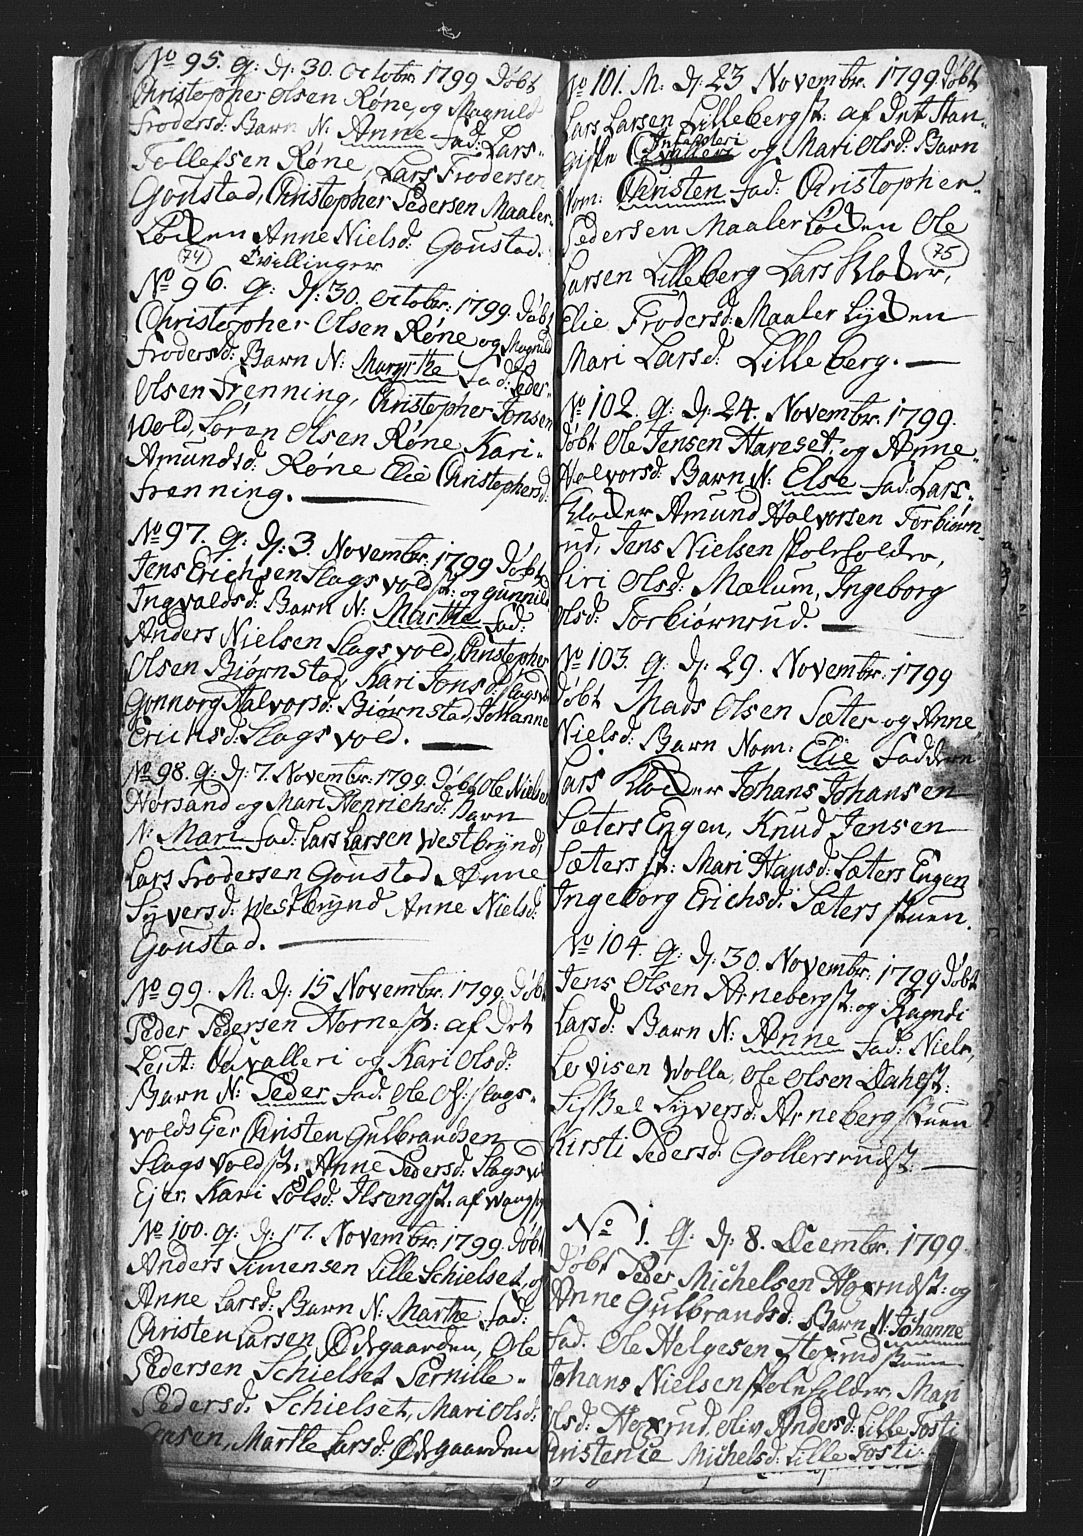 No 95. q: d: 30. Octobr. 1799 Døbt
Christopher Olsen Røne, og Magnild
Frodersd: Barn N: Anne Fad: Lars
Tollefsen Røne, Lars Frodersen
Goustad, Christopher Pedersen Maaler-
Lødden Anne Nielsd: Goustad.
74 Tvillinger
No 96. q: d: 30. Octobr. 1799. Døbt
Christopher Olsen Røne og Magnild
Frodersd: Barn N: Margrethe Fad: Peder
Olsen Frenning, Christopher Jonsen
Wold, Søren Olsen Røne, Kari
Amundsd: Røne Elie Christophersd:
Frenning.
No 97. q: d: 3. Novembr. 1799 Døbt
Jens Erichsen Slagsvoldst: og Gunnild
Ingvaldsd: Barn N: Marthe Fad:
Anders Nielsen Slagsvold, Christopher
Olsen Biørnstad, Kari Jonsd: Slagsvold
Gonnorg Halvorsd: Biørnstad, Johanne
Erichsd: Slagsvold.
No 98. q: d: 7. Novembr. 1799. Døbt Ole Nielsen
Hørsand og Mari Henrichsd: Barn
N: Mari Fad: Lars Larsen Westbrynd,
Lars Frodersen Goustad Anne
Syversd: Westbrynd Anne Nielsd:
Goustad.
No 99. M. d: 15 Novembr. 1799. Døbt
Peder Pedersen Hornest: af Det
Leut: Cavalleri og Kari Olsd:
Barn N: Peder Fad: Ole Ols: Slags-
volds Ejer Christen Gulbrandsen
Slagsvoldst: Anne Pedersd: Slagsvo
Ejer Kari Polsd: Ilsengst: af Wang
No 100. q: d: 17. Novembr. 1799. Døbt
Anders Simensen Lille Schielset, og
Anne Larsd: Barn N: Marthe Fad:
Christen Larsen, Ødegaarden, Ole
Pedersen Schielset Pernille
Pedersd: Schielset, Mari Olsd:
Marthe Larsd: Ødegaarden
No 101. M: d: 23 Novembr. 1799 Døbt
Lars Larsen Lillebergst: af Det Stan-
giske Infanteri og Mari Olsd: Barn
Nom: Christen Fad: Christopher
Pedersen Maaler Lødden Ole
75
Larsen Lilleberg Lars Klocker,
Elie Frodersd: Maaler Lydden
Mari Larsd: Lilleberg.
No 102. q: d: 24. Novembr. 1799.
Døbt Ole Jensen Hareset, og Anne
Halvorsd: Barn N: Else Fad: Lars
Klocker Amund Halvorsen Torbiørn-
rud, Jens Nielsen skoleholder,
Siri Olsd: Mælum, Ingeborg
Olsd: Torbiørnrud.
No 103. q: d: 29. Novembr. 1799
Døbt Mads Olsen Sæter og Anne
Nielsd: Barn Nom: Elie Faddern
Lars Klocker Johans Johansen
Sæters Engen, Knud Jensen
Sæters st: Mari Hansd: Sæters Engen
Ingeborg Erichsd: Sæters stuen.
No 104. q: d: 30. Novembr. 1799 Døbt
Jens Olsen Arnebergst: og Ragndi
Larsd: Barn N: Anne Fad: Niels
Lovisen Wolla, Ole Olsen Dahlst:
Sissel Syversd: Arneberg stuen
Kirsti Pedersd: Gollersrudst:
No 1. q. d: 8. Decembr. 1799
Døbt Peder Michelsen Hoxrudst: og
Anne Gulbrandsd: Barn N: Johanne
Fad. Ole Helgesen Hoxrudstuen
Johans Nielsen skoleholder, Mari
Olsd: Hoxrud, Oliv Andersd: Lille Tosti
Christence Michelsd: Lille Tosti